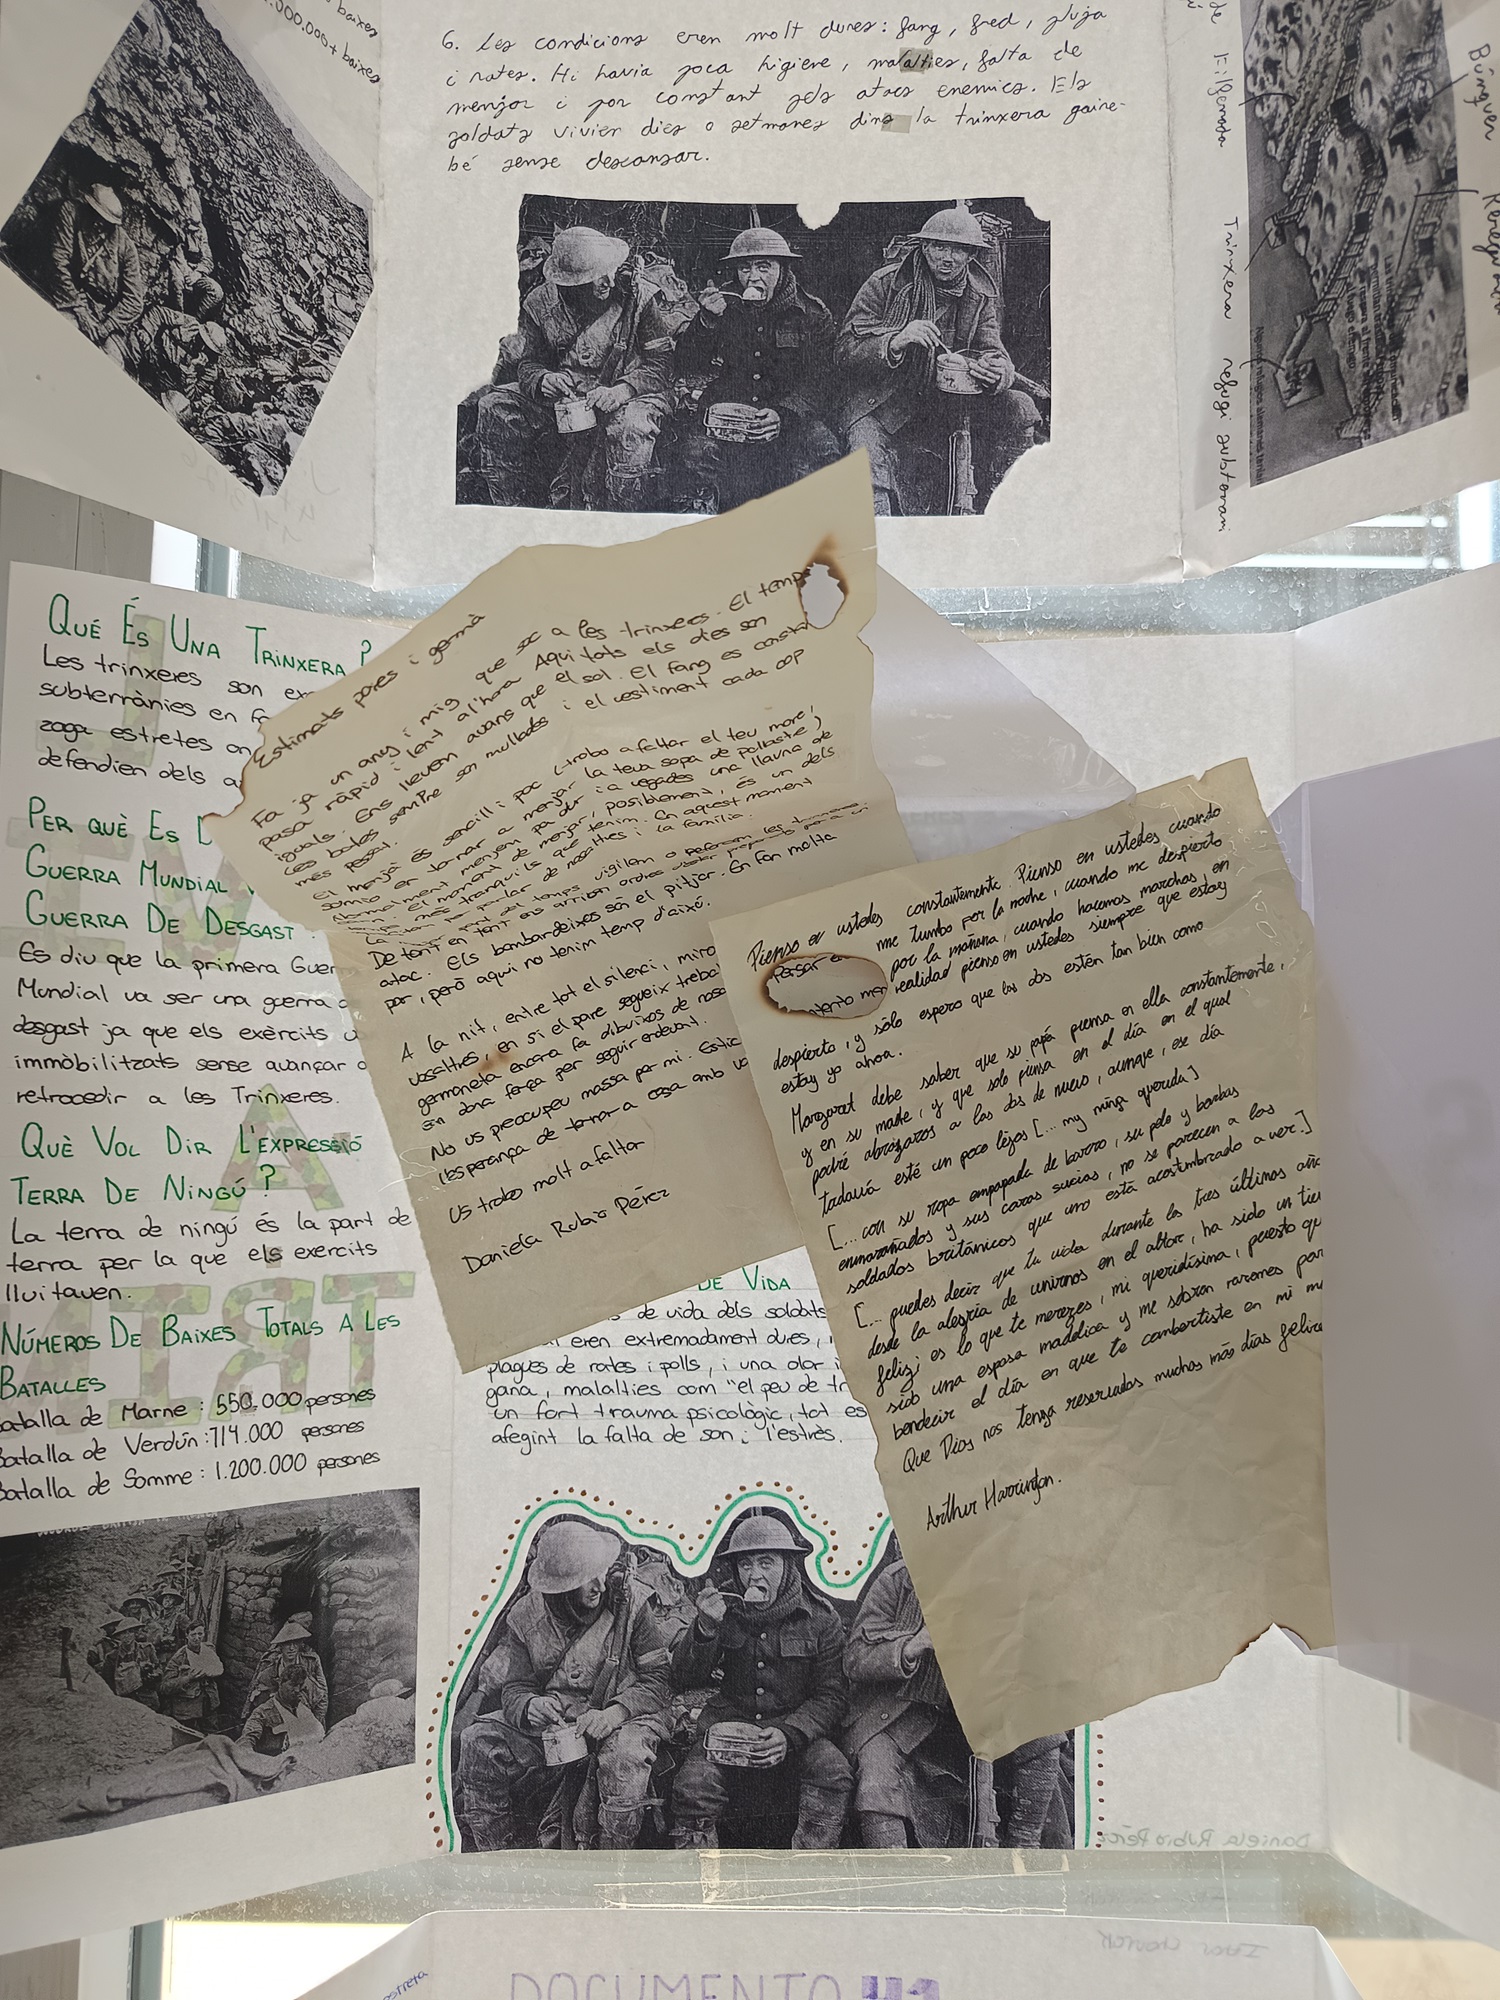 baixes
.000.000+ baixes
6. Les condicions eren molt dures: fang, fred, pluja
i rates. Hi havia poca higiene, malalties, falta de
menjar i por constant pels atacs enemics. Els
soldats vivien dies o setmanes dins la trinxera gaire-
bé sense descansar.
Trinxera refugi subterrani
Búnquer
QUÉ ÉS UNA TRINXERA?
Les trinxeres son
subterrànies en
zaga estretes on
defendien dels
PER QUÈ ES
GUERRA MUNDIAL
GUERRA DE DESGAST
Es diu que la primera Guer
Mundial va ser una guerra
desgast ja que els exèrcits
immòbilitzats sense avançar o
retrocedir a les Trinxeres.
QUÈ VOL DIR L'EXPRESSIÓ
TERRA DE NINGÚ?
La terra de ningú és la part de
terra per la que els exercits
lluitaven.
NÚMEROS DE BAIXES TOTALS A LES
BATALLES
Batalla de Marne: 550.000 persones
Batalla de Verdún: 714.000 persones
Batalla de Somme: 1.200.000 persones
Estimats pares i germà
Fa ja un any i mig que soc a les trinxeres. El temps
pasa ràpid i lent al'hora Aqui tots els dies son
iguals. Ens llevem avans que el sol. El fang es constant
Les botes sempre son mullades i el vestiment cada cop
més pesat.
El menjà és sencill i poc (trobo a faltar el teu mare,
somio en tornar a menjar la teva sopa de pollastre)
Normalment menjem pa dur i a vegades una llauna de
El moment de menjar, posiblement, és un dels
més tranquils que tenim. En aquest moment
parlar de nosaltres i la família.
temps vigilem o
De tant en tant ens arriben ordres
atac. Els bombardeixos són el pitjor. En fan molta
por, però aqui no tenim temp d'aixó.
A la nit, entre tot el silenci, miro
vosaltres, en si el pare segueix treba
germaneta encara fa dibuixos de nosa
em dona força per seguir endevant.
No us preocupeu massa per mi. Estic
l'esperança de tornar a casa amb vo
Us trobo molt a faltar
Daniela Rubio Pérez
Pienso en ustedes constantemente. Pienso en ustedes cuando
me tumbo por la noche, cuando me despierto
por la mañana, cuando hacemos marchas, en
realidad pienso en ustedes siempre que estoy
despierto, y sólo espero que los dos estén tan bien como
estoy yo ahora.
Margaret debe saber que su papá piensa en ella constantemente,
y en su madre, y que solo piensa en el día en el qual
podré abrazaros a las dos de nuevo, aunque, ese día
todavía esté un poco lejos [... my niña querida]
[... con su ropa empapada de barro, su pelo y barbas
enmarañados y sus caras sucias, no se parecen a los
soldados británicos que uno está acostumbrado a ver.]
[... puedes decir que tu vida durante los tres últimos año
desde la alegría de unirnos en el altar, ha sido un tie
feliz; es lo que te mereces, mi queridísima, puesto qu
sido una esposa modélica y me sobran razones par
bendecir el día en que te combertiste en mi mu
Que Dios nos tenga reservados muchos más días felice
Arthur Harrington.
DE VIDA
de vida dels soldats
eren extremadament dures,
plagues de rates i polls, i una olor i
gana, malalties com "el peu de tr
un fort trauma psicològic, tot es
afegint la falta de son i l'estrès.
Daniela Rubio Pérez
DOCUMENTO